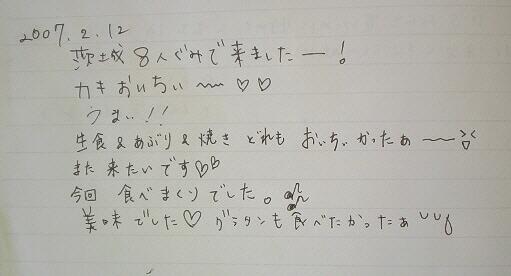 2007.2.12
茨城8人ぐみで来ましたー!
カキおいちぃ〜〜♡♡
うまい!!
生食&あぶり&焼き どれも おいちぃかったぁ〜〜
また来たいです♡♡
今回 食べまくりでした。
美味でした♡ グラタンも食べたかったぁ